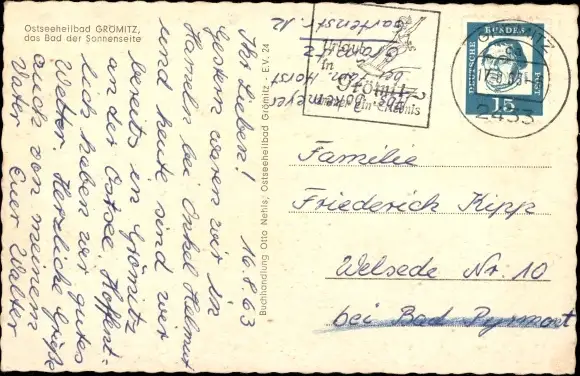 Ostseeheilbad GRÖMITZ,
das Bad der Sonnenseite
16.8.63
Ihr Lieben!
Gestern waren wir in
Hameln bei Onkel Helmut
und heute sind wir
bereits in Grömitz
an der Ostsee. Hoffent-
lich haben wir gutes
Wetter. Herzliche Grüße
auch von meinem
Vater Euer Walter
Buchhandlung Otto Nehls, Ostseeheilbad Grömitz - E.V. 24
Abs. Bökemeyer
bei den Horst
Gartenstr. 12
Urlaub
in
Grömitz
immer ein Erlebnis
GRÖMITZ
2433
DEUTSCHE
BUNDES
POST
15
Familie
Friederich Kipp
Welsede Nr. 10
bei Bad Pyrmont